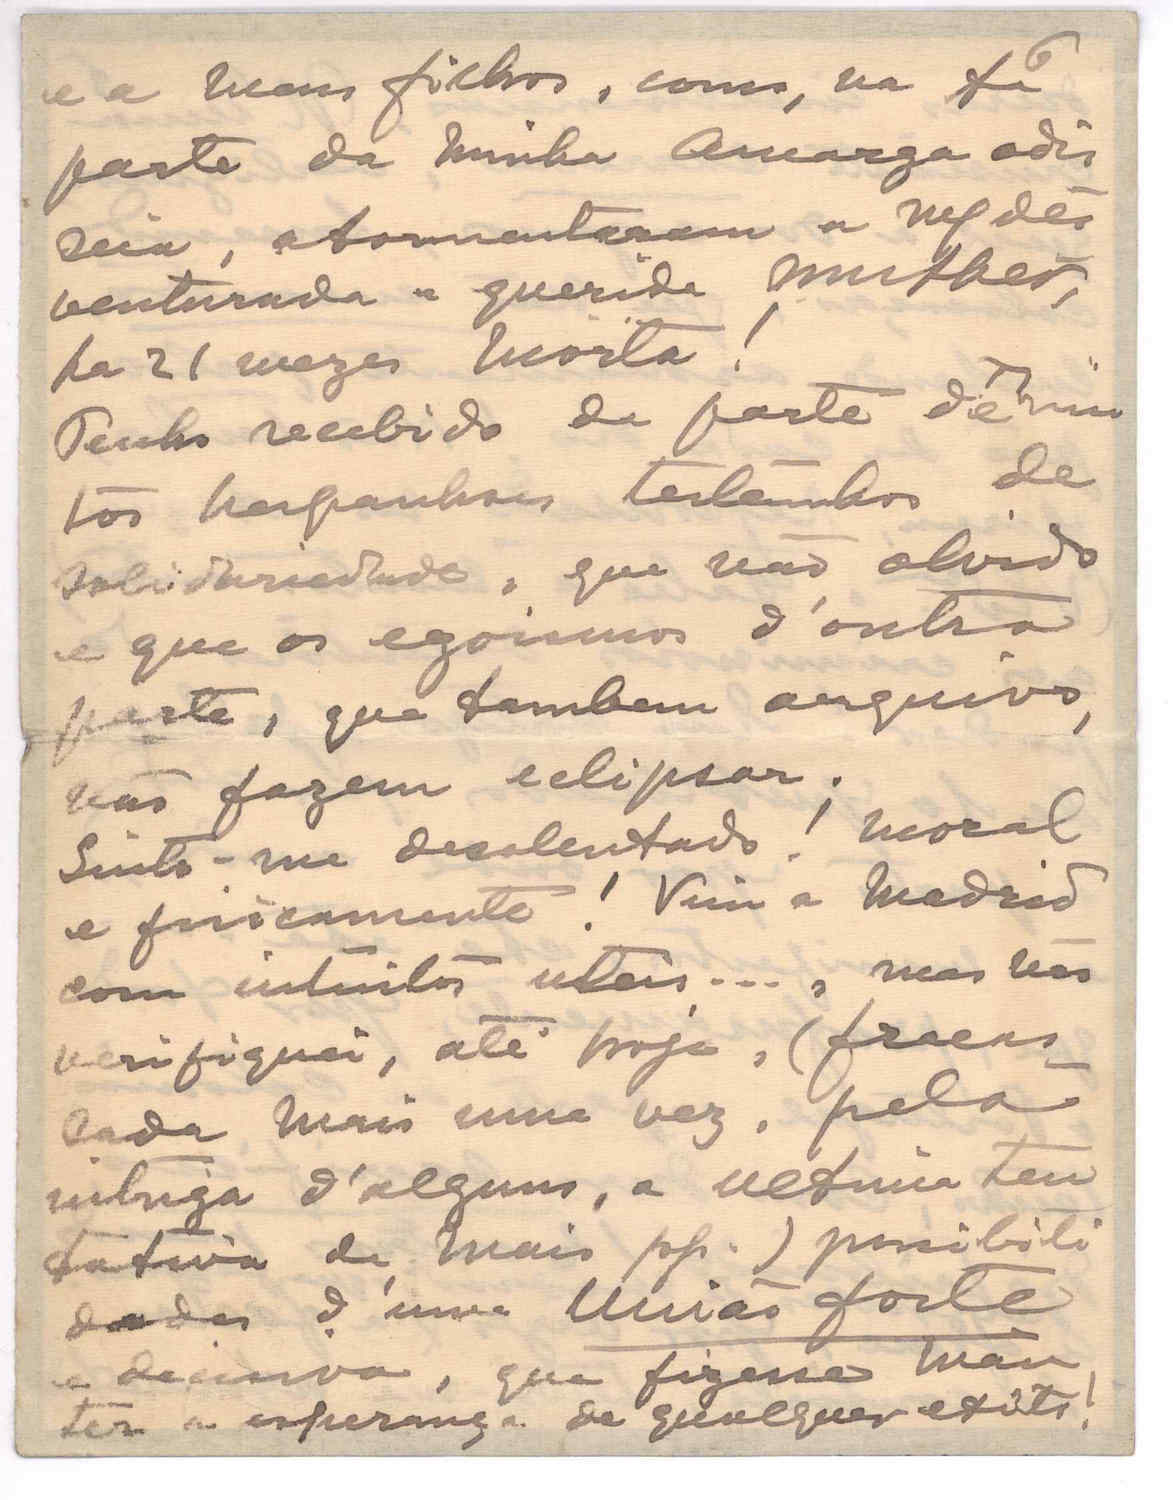 e a meus filhos, como, na 1ª
parte da minha amarga odis
seia, atormentaram a mª des
venturada e querida mulher,
ha 21 mezes morta!
Tenho recebido da parte de mui
tos hespanhoes testemunhos de
solidariedade, que não olvido
e que os egoismos d'outra
parte, que tambem arquivo,
não fazem eclipsar.
Sinto-me desalentado! Moral
e fisicamente! Vim a Madrid
com intuitos uteis..., mas não
verifiquei, até hoje, (fracas
sada mais uma vez, pela
intriga d'alguns, a ultima ten
tativa de mais ) possibili
dades d'uma União forte
e decisiva, que fizesse man
ter a esperança de qualquer exito!